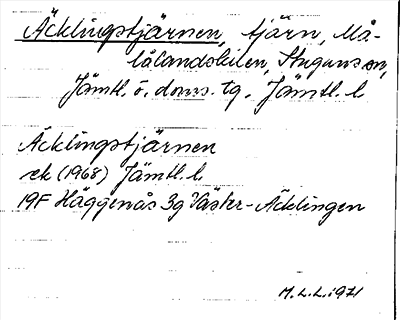 Äcklingstjärnen, tjärn, Må-
lålandskilen, Stuguns sn,
Jämtl. ö. doms. tg., Jämtl. l.
Äcklingstjärnen
ek (1968) Jämtl. l.
19F Häggenås 3g Väster-Äcklingen
M.L.L. 1971